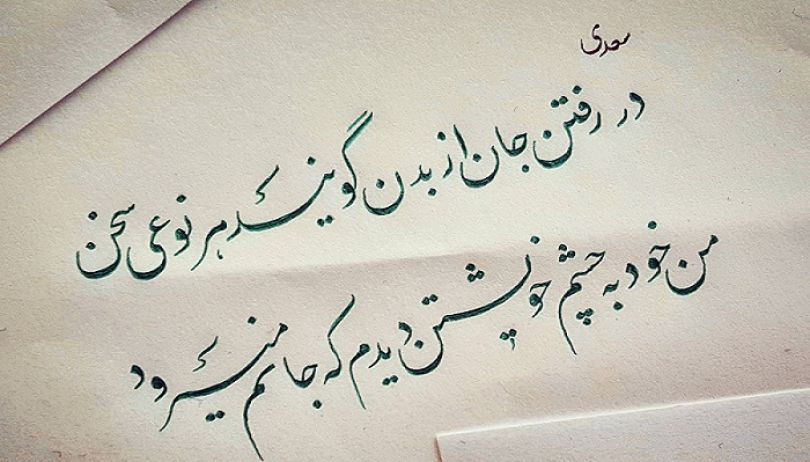 سعدی
در رفتن جان از بدن گویند هر نوعی سخن
من خود به چشم خویشتن دیدم که جانم میرود